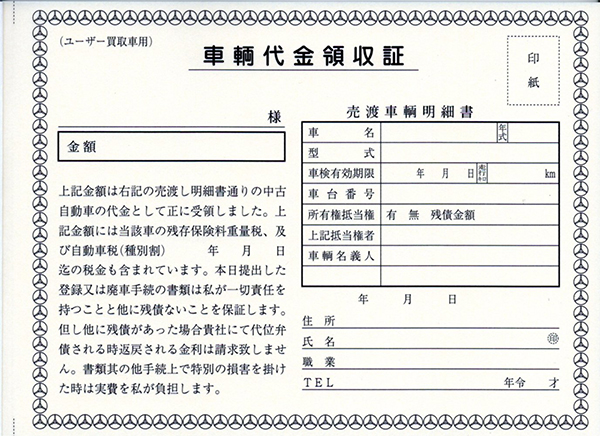 （ユーザー買取車用）
車輌代金領収証
印
紙
様
金額
上記金額は右記の売渡し明細書通りの中古
自動車の代金として正に受領しました。上
記金額には当該車の残存保険料重量税、及
び自動車税（種別割）　　年　月　日
迄の税金も含まれています。本日提出した
登録又は廃車手続の書類は私が一切責任を
持つことと他に残債ないことを保証します。
但し他に残債があった場合貴社にて代位弁
債される時返戻される金利は請求致しませ
ん。書類其の他手続上で特別の損害を掛け
た時は実費を私が負担します。
売渡車輌明細書
車名　年式
型式
車検有効期限　年　月　日　走行キロ　km
車台番号
所有権抵当権　有　無　残債金額
上記抵当権者
車輌名義人
年　月　日
住所
氏名　㊞
職業
TEL　年令　才